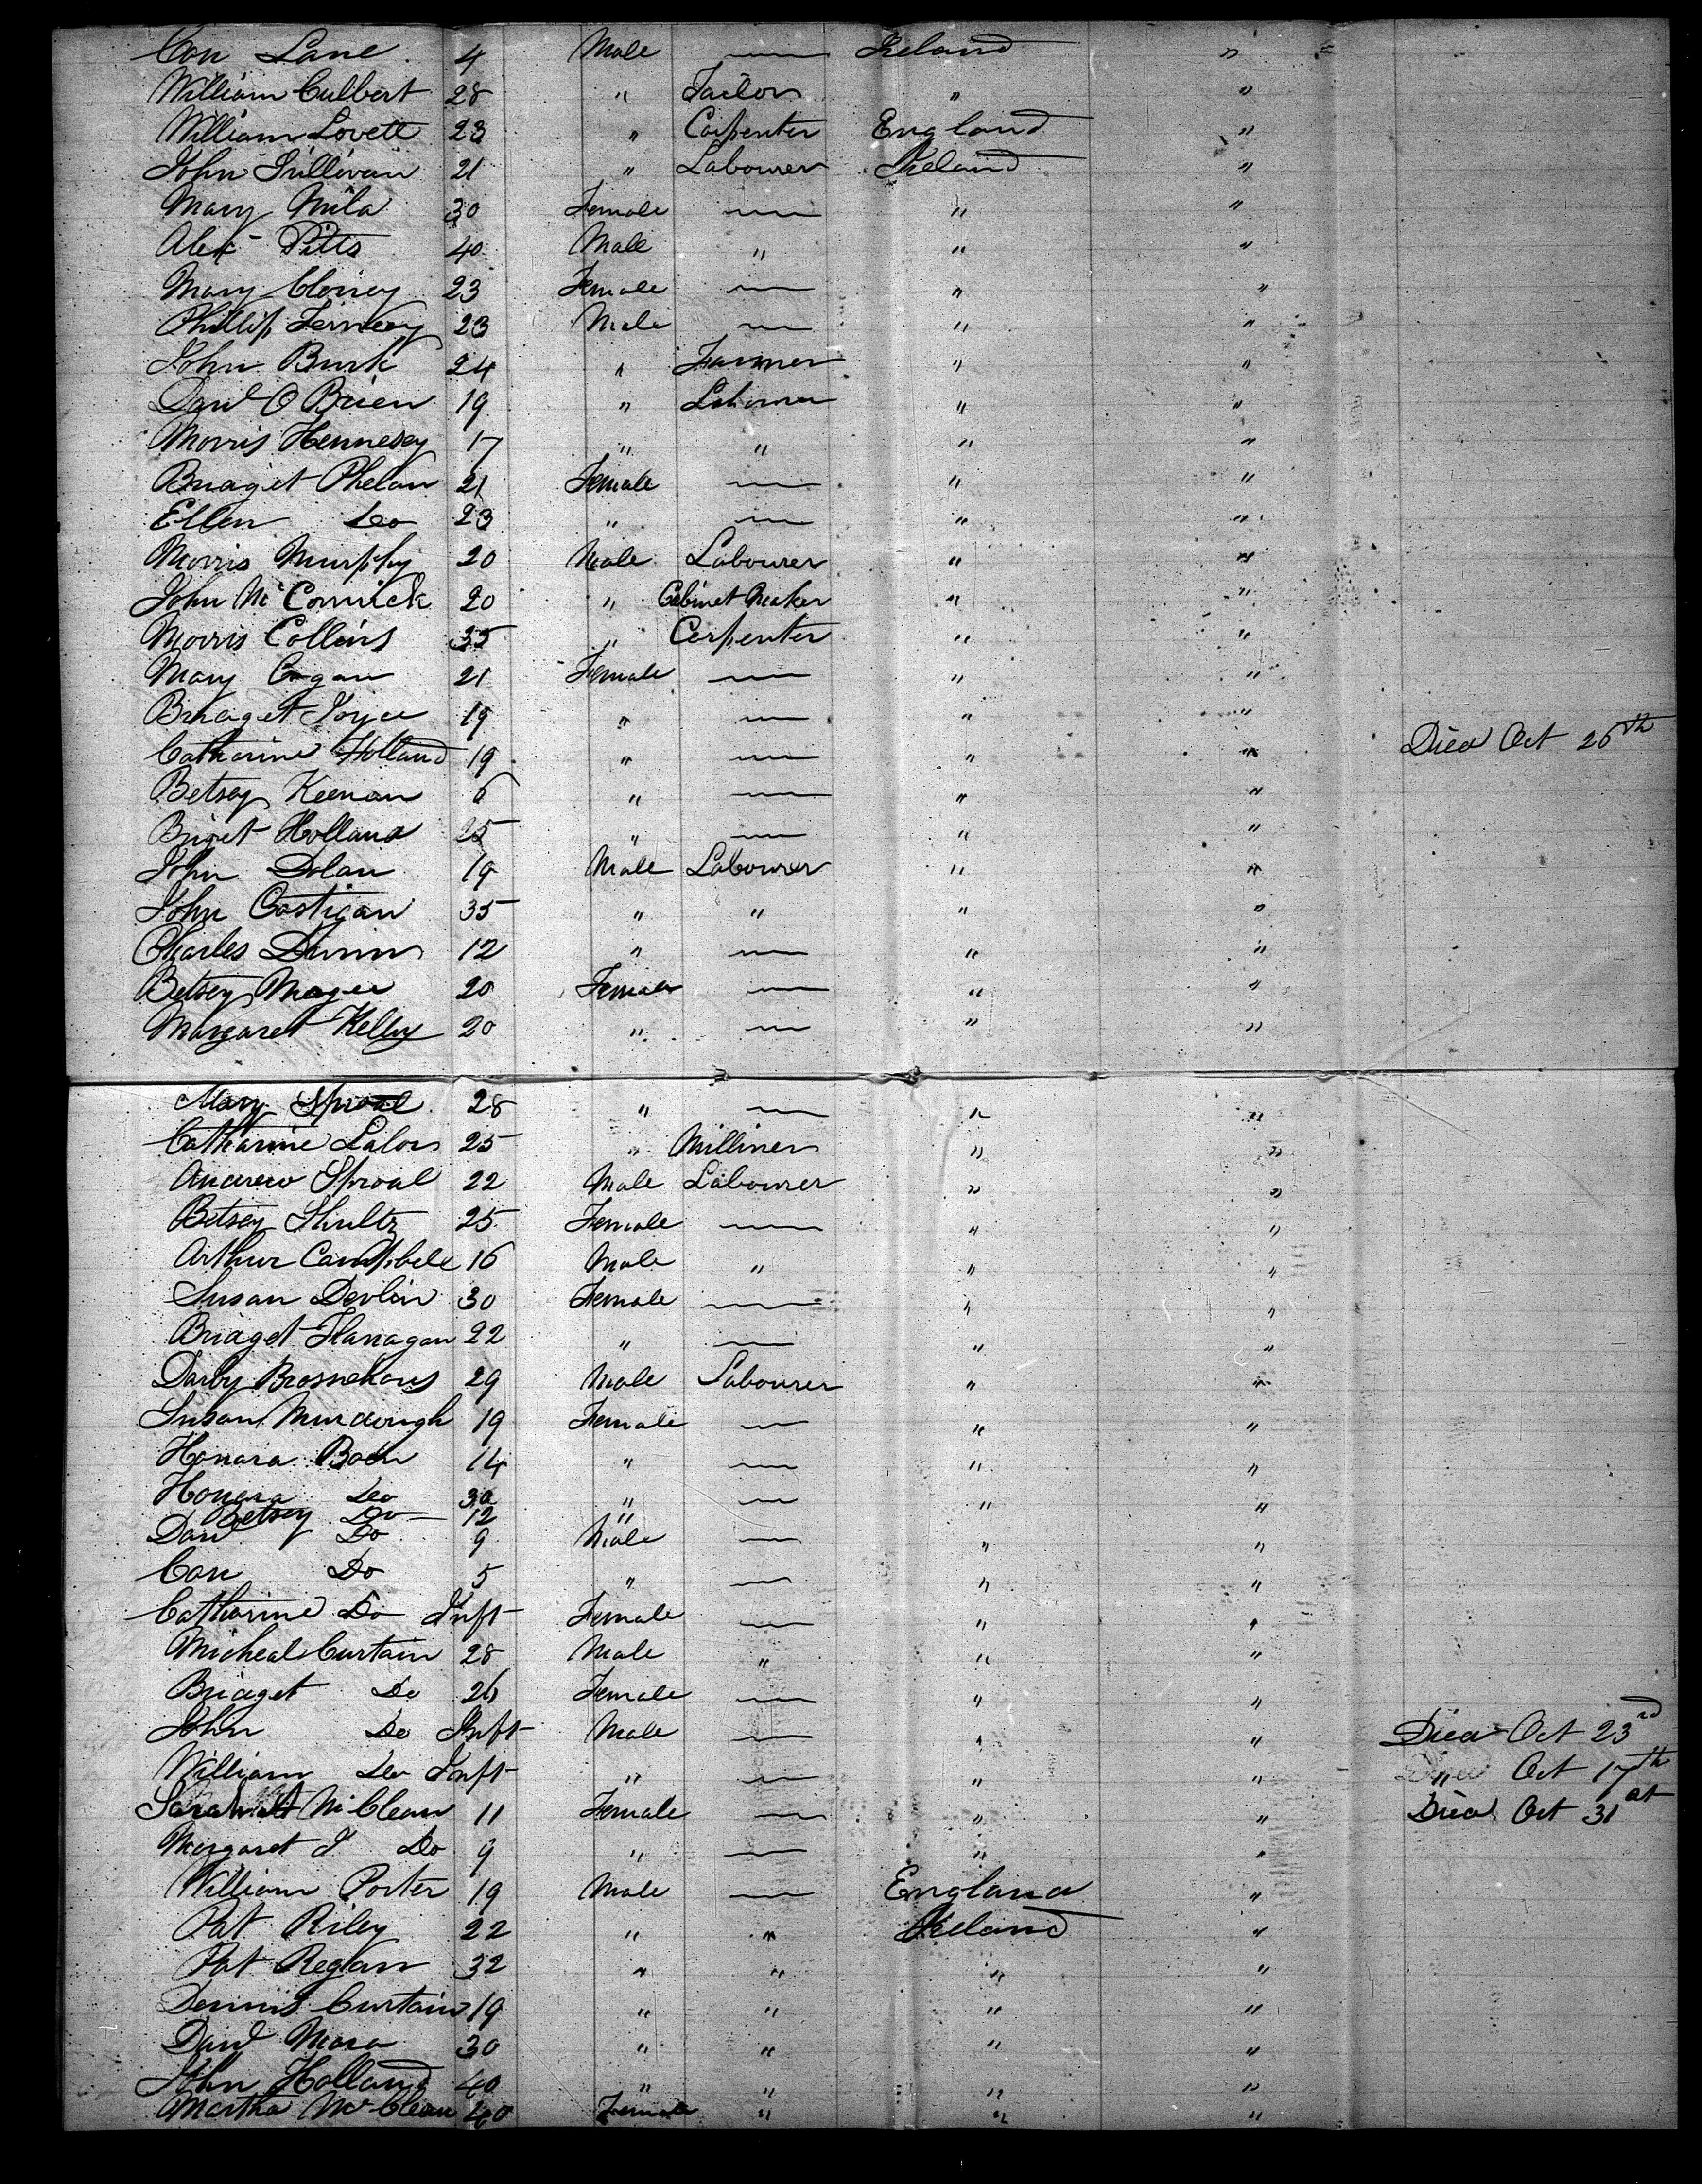 Con Lane 4 Male — Ireland "
William Culbert 28 " Tailor " "
William Lovett 23 " Carpenter England "
John Sullivan 21 " Labourer Ireland "
Mary 30 Female — " "
Alex Pitts 40 Male " " "
Mary 23 Female — " "
Phillip 23 Male — " "
John Burk 24 " Farmer " "
Davd O Brien 19 " Labourer " "
Morris Hennesey 17 " " " "
Bridget Phelan 21 Female — " "
Ellen Do 23 " — " "
Morris Murphy 20 Male Labourer " "
John McCormick 20 " Cabinet Maker " "
Morris Collins 35 " Carpenter " "
Mary Cogan 21 Female — " "
Bridget Joyce 19 " — " "
Catharine Holland 19 " — " " Died Oct 26th
Betsey Keenan 6 " — " "
Briget Holland 25 " — " "
John Dolan 19 Male Labourer " "
John Costigan 35 " " " "
Charles Dunn 12 " — " "
Betsey Magee 20 Female — " "
Margaret Kelly 20 " — " "
Mary Sproal 28 " — " "
Catharine Lalor 25 " Milliner " "
Andrew Sproal 22 Male Labourer " "
Betsey Shultz 25 Female — " "
Arthur Campbell 16 Male " " "
Susan Devlin 30 Female — " "
Bridget Flanagan 22 " — " "
Darby Brosnehans 29 Male Labourer " "
Susan Murdough 19 Female — " "
Honara 14 " — " "
Honara Do 30 " — " "
Betsey Do 12 "
Davd Do 9 Male — " "
Con Do 5 " — " "
Catharine Do Inft Female — " "
Micheal Curtain 28 Male " " "
Bridget Do 26 Female — " "
John Do Inft Male — " " Died Oct 23rd
William Do Inft " — " " " Oct 17th
Sarah McClean 11 Female — " " Died Oct 31st
Margaret J Do 9 " — " "
William Porter 19 Male — England "
Pat Riley 22 " " Ireland "
Pat Regan 32 " " " "
Dennis Curtain 19 " " " "
Davd Mara 30 " " " "
John Holland 40 " " " "
Martha McClean 40 Female " " "